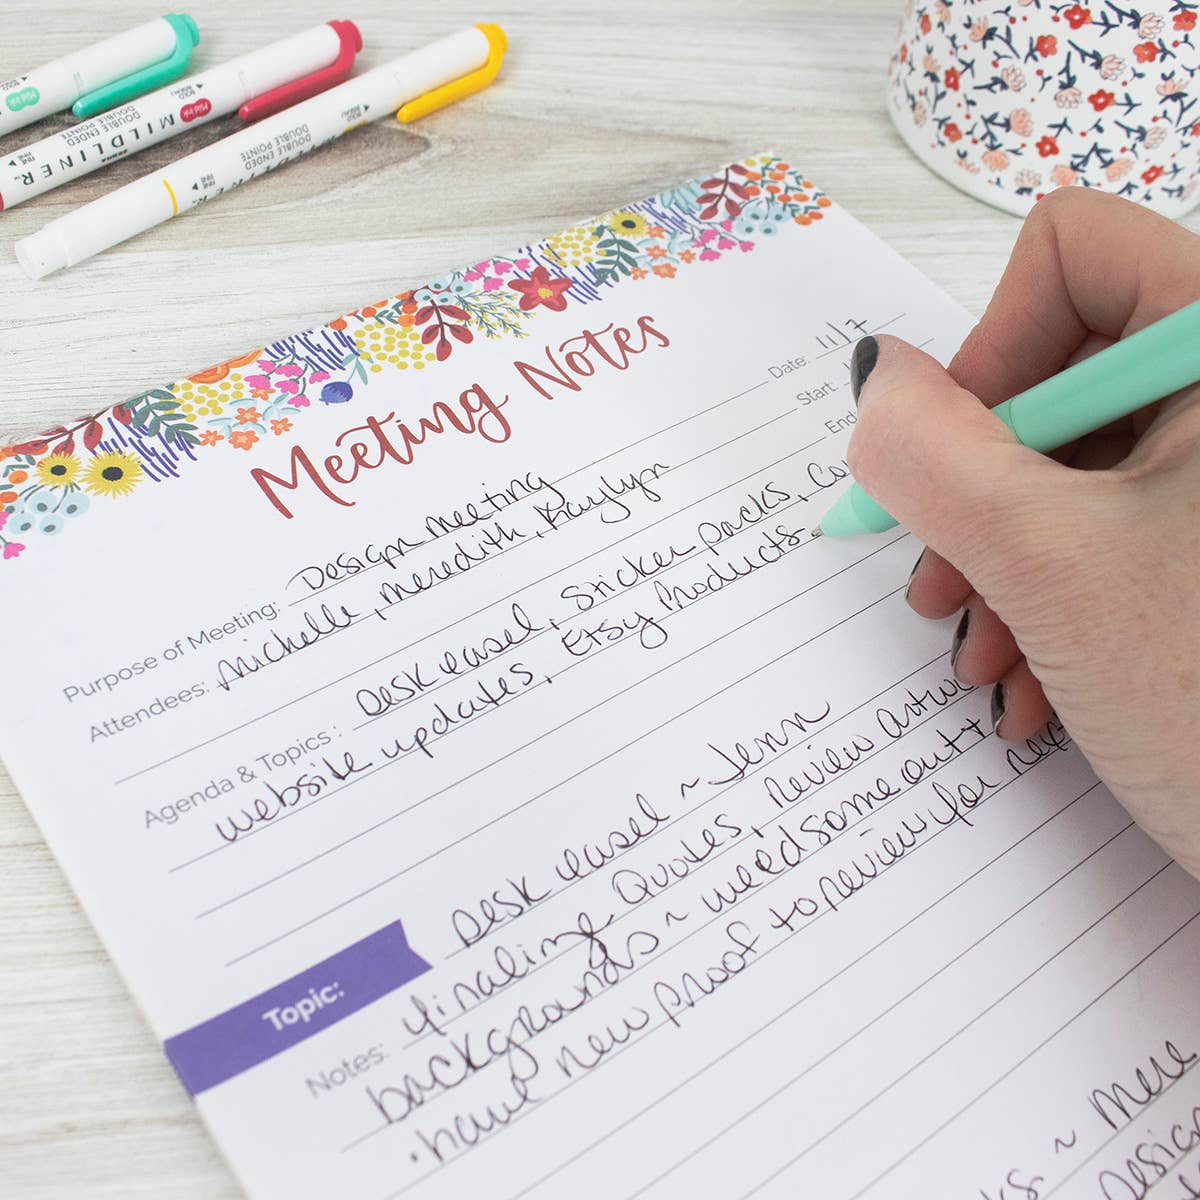 MILDLINER™
DOUBLE ENDED
DOUBLE POINTE
FINE
BOLD
ZEBRA
DOUBLE ENDED
DOUBLE POINTE
FINE
Meeting Notes
Date: 11/7
Start:
End
Purpose of Meeting: Design meeting
Attendees: Michelle, meredith, Kaylyn
Agenda & Topics: Desk easel, sticker packs,
website updates, Etsy Products.
Topic: Desk easel ~ Jenn
Notes: Finaling Quotes, review
backgrounds ~ need some
· have new proof to review for next
~ Mere